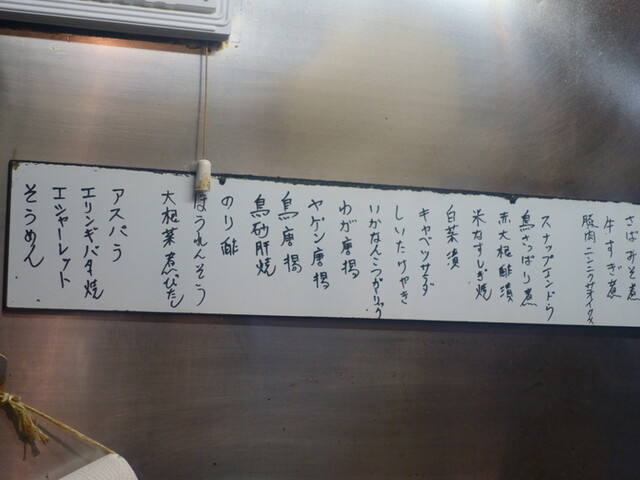 さばみそ煮
牛すき煮
豚肉ニンニク
スナップエンドウ
鳥さっぱり煮
赤大根酢漬
米なすしぎ焼
白菜漬
キャベツサラダ
しいたけやき
いかなんこつガーリック
わが唐揚
ヤゲン唐揚
鳥唐揚
鳥砂肝焼
のり酢
ほうれんそう
大根菜煮びたし
アスパラ
エリンギバタ焼
エシャーレット
そうめん